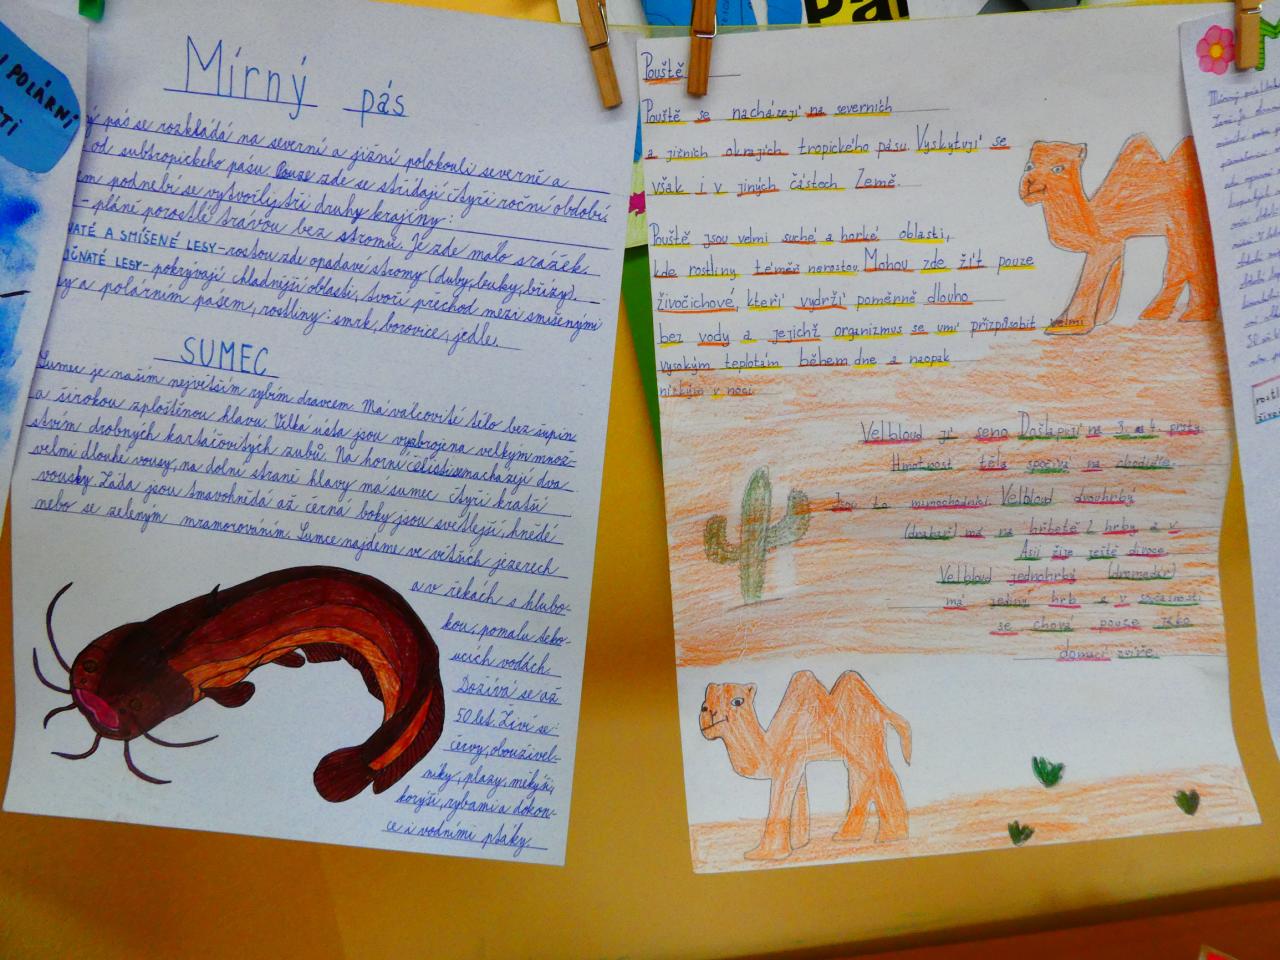 POLÁRNÍ
Mírný pás
pás se rozkládá na severní a jižní polokouli severně a
od subtropického pásu. Pouze zde se střídají čtyři roční období.
podnebí se vytvořily tři druhy krajiny:
- pláně porostlé trávou bez stromů. Je zde málo srážek.
A SMÍŠENÉ LESY - rostou zde opadavé stromy (duby, buky, břízy).
LESY - pokrývají chladnější oblasti, tvoří přechod mezi smíšenými
a polárním pásem, rostliny: smrk, borovice, jedle.
SUMEC
Sumec je naším největším rybím dravcem. Má válcovité tělo bez šupin
a širokou zploštěnou hlavu. Velká ústa jsou vyzbrojena velkým množ-
stvím drobných kartáčovitých zubů. Na horní čelisti se nacházejí dva
velmi dlouhé vousy, na dolní straně hlavy má sumec čtyři kratší
vousky. Záda jsou tmavohnědá až černá boky jsou světlejší, hnědé
nebo se zeleným mramorováním. Sumce najdeme ve větších jezerech
a v řekách s hlubo-
kou, pomalu teko-
ucích vodách.
Dožívá se až
50 let. Živí se:
červy, obojživel-
níky, plazy, měkýši,
korýši, rybami a dokon-
ce i vodními ptáky.
Pal
Pouště
Pouště se nacházejí na severních
a jižních okrajích tropického pásu. Vyskytují se
však i v jiných částech Země.
Pouště jsou velmi suché a horké oblasti,
kde rostliny téměř nerostou. Mohou zde žít pouze
živočichové, kteří vydrží poměrně dlouho
bez vody a jejichž organizmus se umí přizpůsobit velmi
vysokým teplotám během dne a naopak
nízkým v noci
Velbloud jí seno Došlapují na 3. a 4. prstu
Hmotnost těla spočívá na chodidle.
Jsou to mimochodníci. Velbloud dvouhrbý
(drabař) má na hřbetě 2 hrby a v
Asii žije ještě divoce.
Velbloud jednohrbý (dromedár)
má jediný hrb a v současnosti
se chová pouze jako
domácí zvíře.